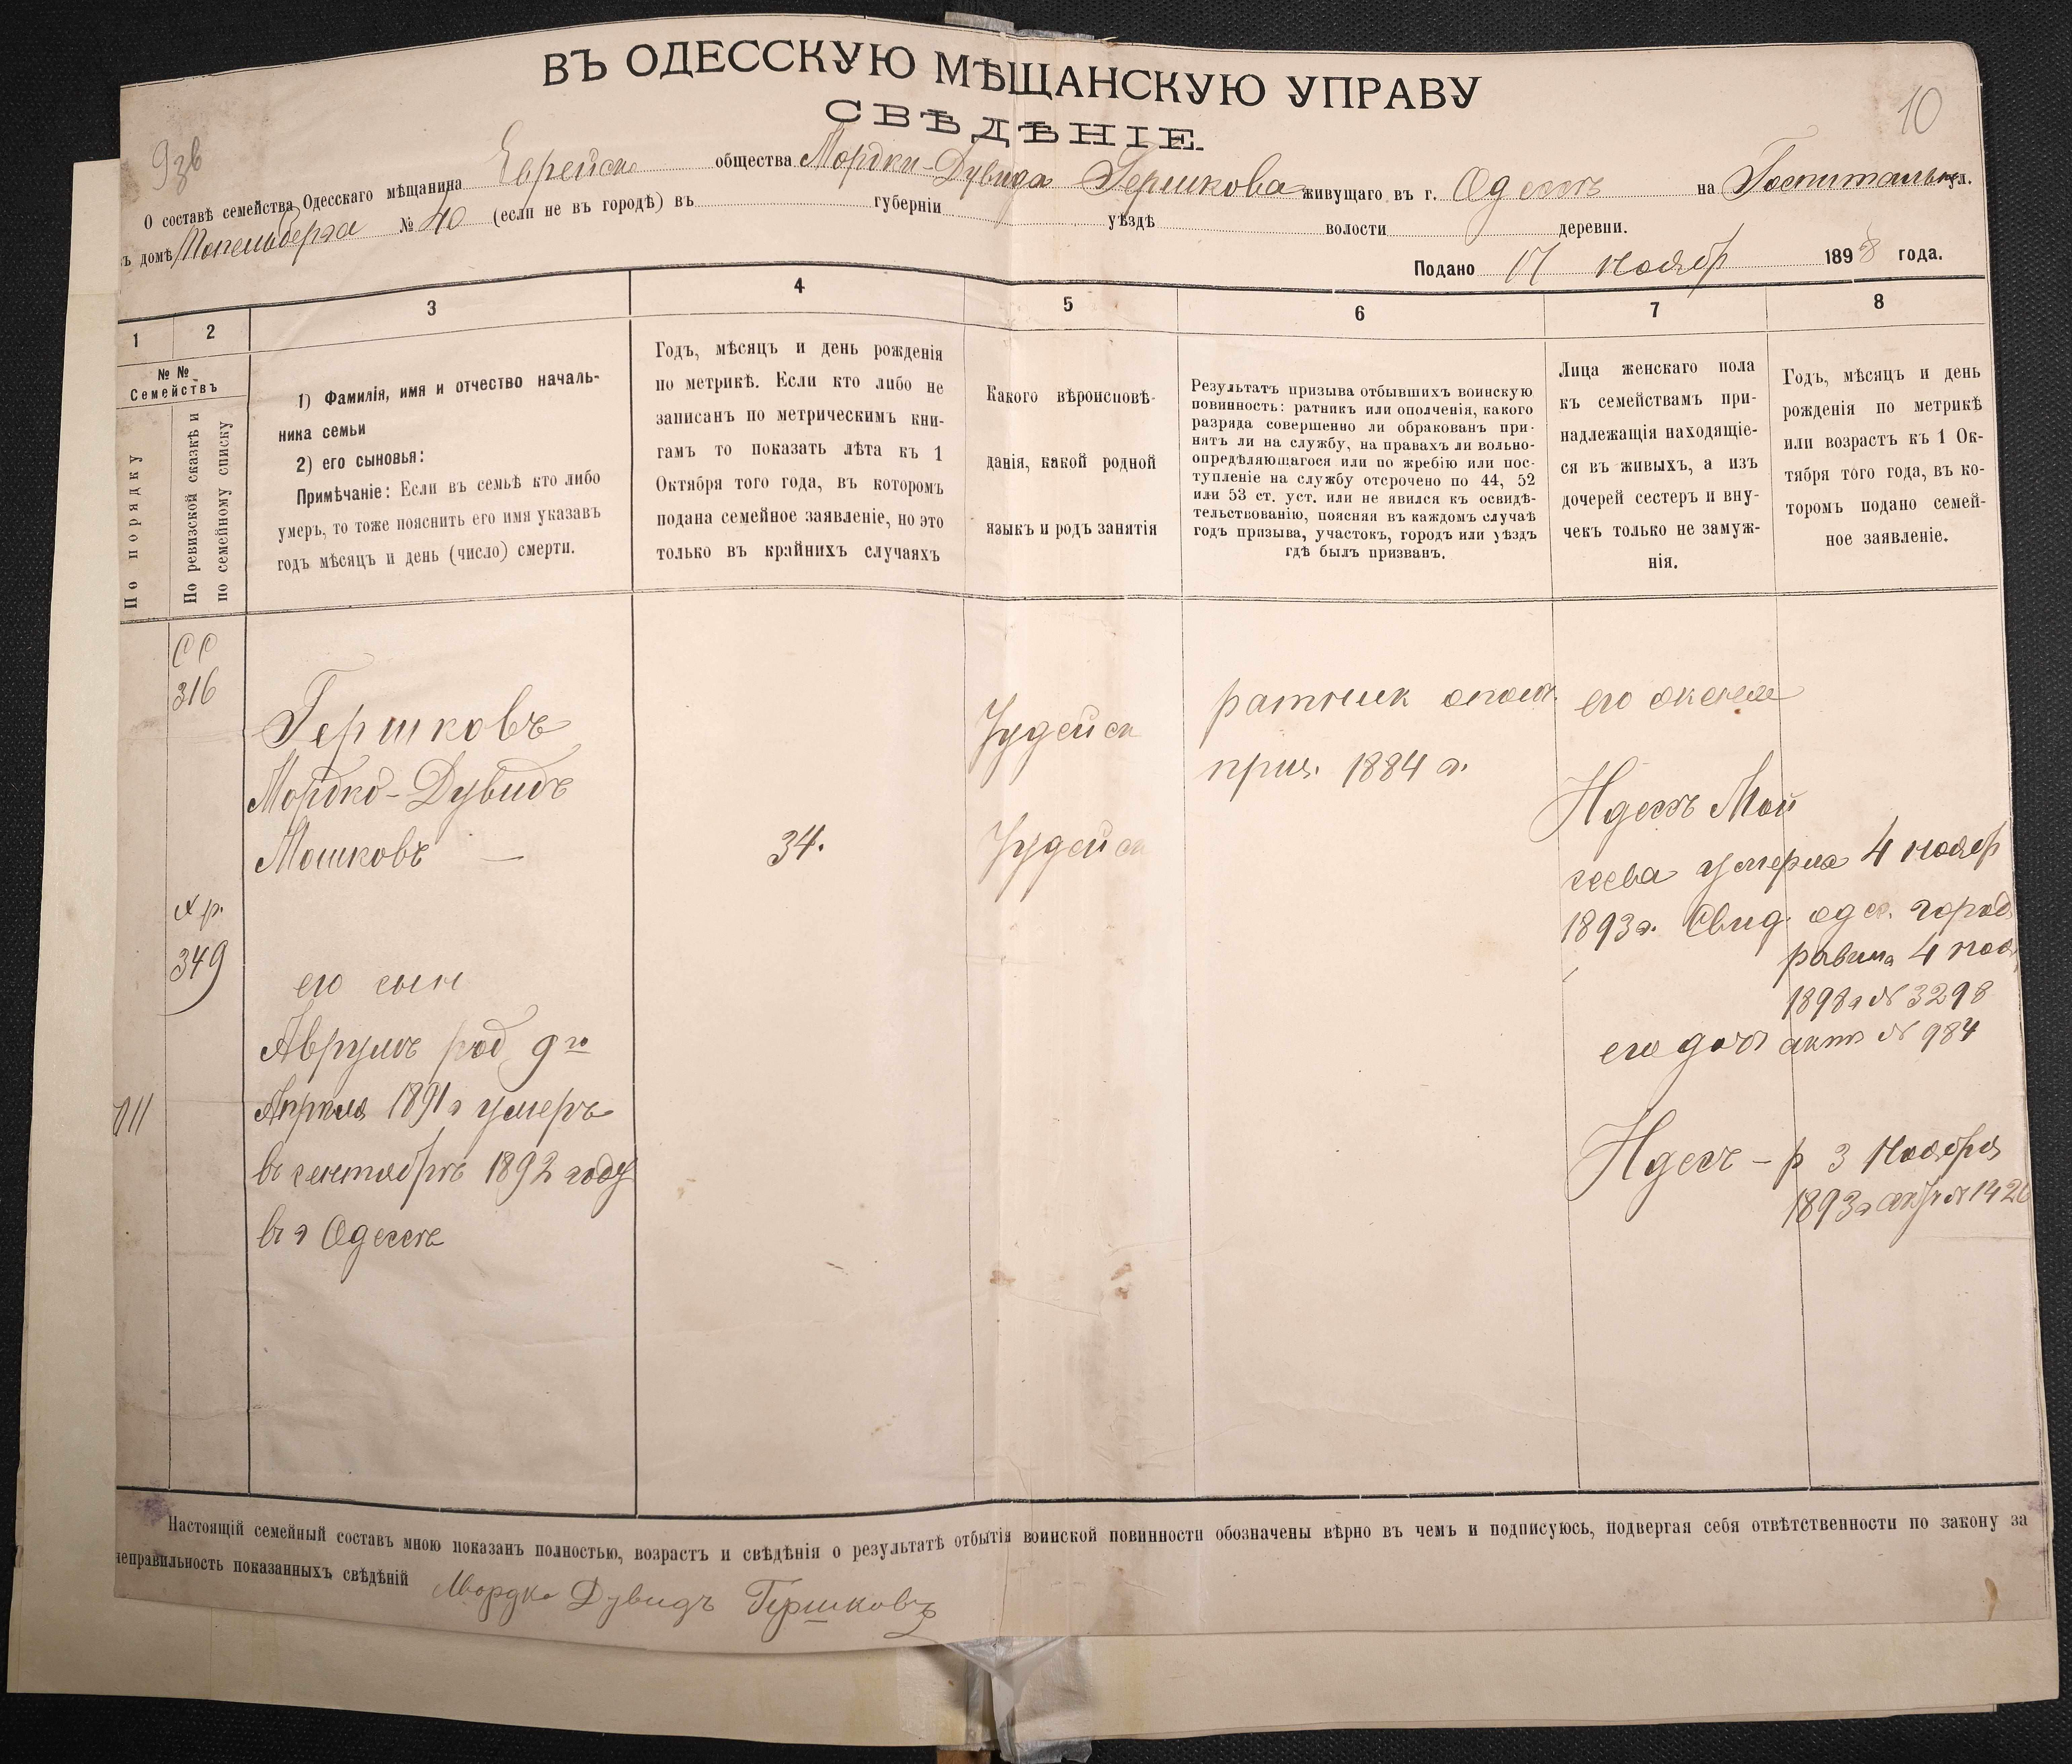 ВЪ ОДЕССКУЮ МѢЩАНСКУЮ УПРАВУ
СВѢДѢНІЕ.
10
О составѣ семейства Одесскаго мѣщанина Еврейск общества Мордки-Дувида Гершкова живущаго въ г. Одессѣ на Госпитальн ул.
ъ домѣ № 40 (если не въ городѣ) въ губерніи уѣздѣ волости деревни.
Подано 17 ноябр 1898 года.
1
2
3
4
5
6
7
8
№ №
Семействъ
По порядку
По ревизской сказкѣ и
по семейному списку
1) Фамилія, имя и отчество началь-
ника семьи
2) его сыновья:
Примѣчаніе: Если въ семьѣ кто либо
умеръ, то тоже пояснить его имя указавъ
годъ мѣсяцъ и день (число) смерти.
Годъ, мѣсяцъ и день рожденія
по метрикѣ. Если кто либо не
записанъ по метрическимъ кни-
гамъ то показать лѣта къ 1
Октября того года, въ которомъ
подана семейное заявленіе, но это
только въ крайнихъ случаяхъ
Какого вѣроисповѣ-
данія, какой родной
языкъ и родъ занятія
Результатъ призыва отбывшихъ воинскую
повинность: ратникъ или ополченія, какого
разряда совершенно ли обракованъ при-
нятъ ли на службу, на правахъ ли вольно-
опредѣляющагося или по жребію или пос-
тупленіе на службу отсрочено по 44, 52
или 53 ст. уст. или не явился къ освидѣ-
тельствованію, поясняя въ каждомъ случаѣ
годъ призыва, участокъ, городъ или уѣздъ
гдѣ былъ призванъ.
Лица женскаго пола
къ семействамъ при-
надлежащія находящіе-
ся въ живыхъ, а изъ
дочерей сестеръ и вну-
чекъ только не замуж-
нія.
Годъ, мѣсяцъ и день
рожденія по метрикѣ
или возрастъ къ 1 Ок-
тября того года, въ ко-
торомъ подано семей-
ное заявленіе.
СС
316
Гершковъ
Мордко-Дувидъ
Мошковъ —
34.
Іудейск
Іудейск
ратник опол.
приз. 1884 г.
его жена
Идесъ Мой
сеева умерла 4 ноябр
1893г. Свид. одес. город
равина 4 ноя
1898г № 3298
его доч актъ № 984
Идесъ – р 3 Ноября
1893г № 1426
349
его сын
Аврумъ род 9го
Апреля 1891 г умеръ
въ сентябрѣ 1892 году
въ г Одессѣ
Настоящій семейный составъ мною показанъ полностью, возрастъ и свѣдѣнія о результатѣ отбытія воинской повинности обозначены вѣрно въ чемъ и подписуюсь, подвергая себя отвѣтственности по закону за
неправильность показанныхъ свѣдѣній Мордко Дувидъ Гершковъ